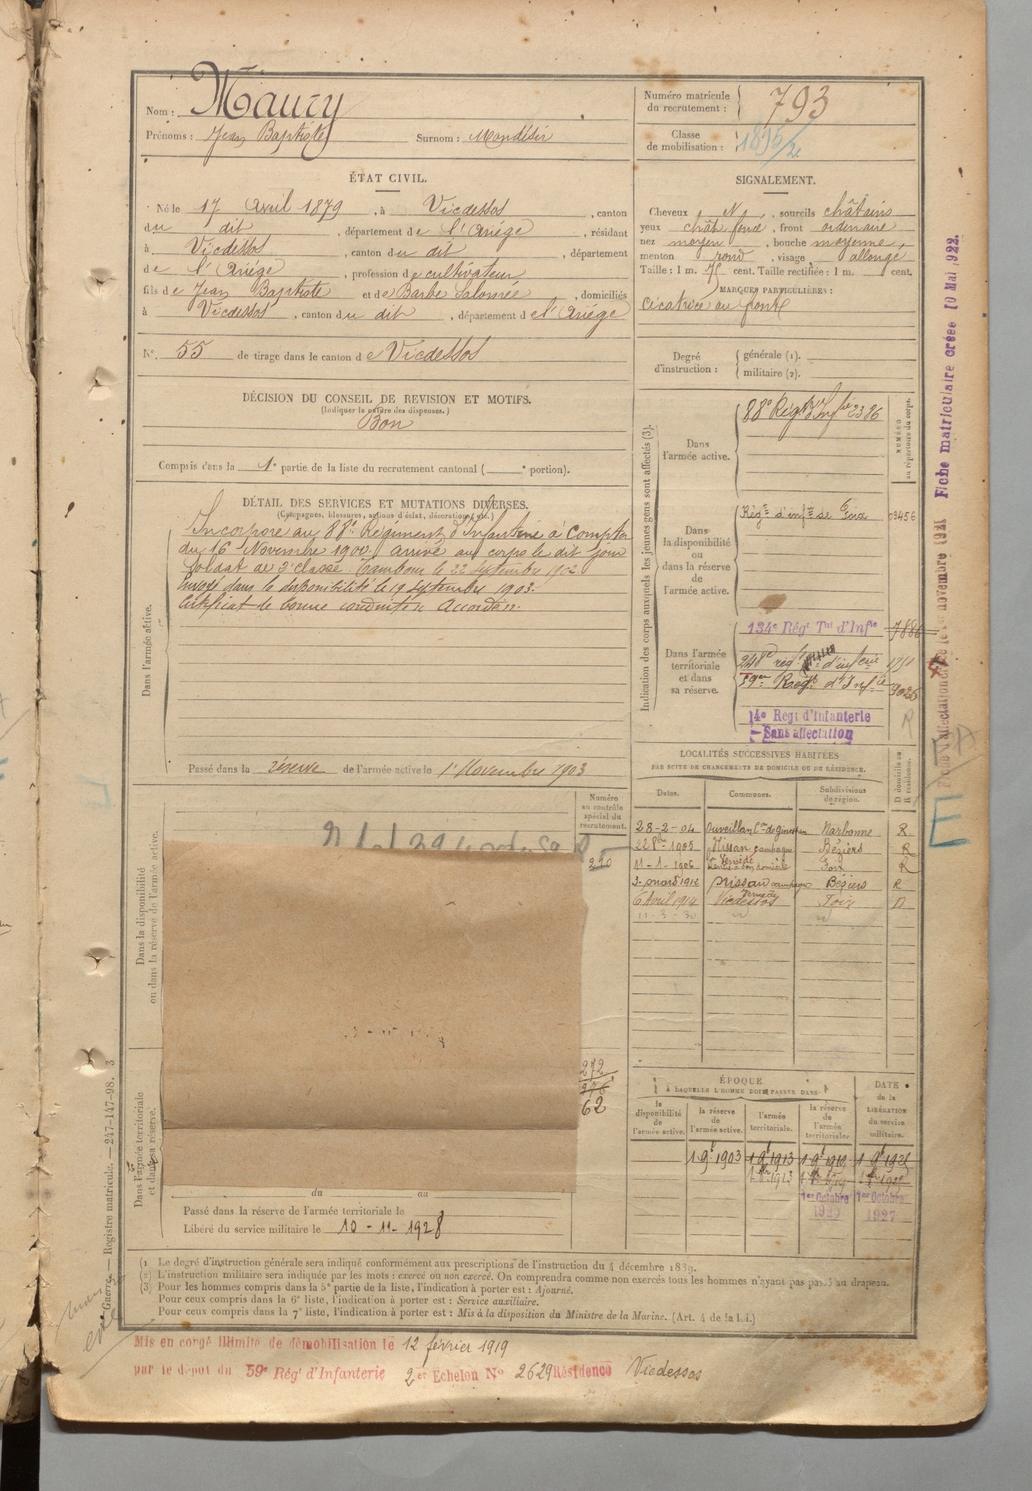 Nom : Maury
Prénoms : Jean Baptiste Surnom : Mondésir
Numéro matricule du recrutement : 793
Classe de mobilisation :
ÉTAT CIVIL.
Né le 17 avril 1879, à Vicdessos, canton
du dit, département de l'Ariège, résidant
à Vicdessos, canton du dit, département
de l'Ariège, profession de cultivateur
fils de Jean Baptiste et de Barbe Salomée, domiciliés
à Vicdessos, canton du dit, département de l'Ariège
N° 55 de tirage dans le canton de Vicdessos
SIGNALEMENT.
Cheveux N, sourcils châtains
yeux chât foncé, front ordinaire
nez moyen, bouche moyenne,
menton rond, visage allongé
Taille : 1 m. 75 cent. Taille rectifiée : 1 m. cent.
MARQUES PARTICULIÈRES :
Cicatrice au front
Degré d'instruction : générale (1).
militaire (2).
DÉCISION DU CONSEIL DE REVISION ET MOTIFS.
(Indiquer la nature des dispenses.)
Bon
Compris dans la 1e partie de la liste du recrutement cantonal ( e portion).
DÉTAIL DES SERVICES ET MUTATIONS DIVERSES.
(Campagnes, blessures, actions d'éclat, décorations, etc.)
Dans l'armée active.
Incorporé au 88e Régiment d'Infanterie à compter
du 16 Novembre 1900. arrivé au corps le dit jour
Soldat de 2e classe. Tambour le 22 septembre 1902
Envoyé dans la disponibilité le 19 septembre 1903.
Certificat de bonne conduite Accordé.
Passé dans la réserve de l'armée active le 1er Novembre 1903
Indication des corps auxquels les jeunes gens sont affectés (3).
NUMÉRO au répertoire du corps.
Dans l'armée active.
88e Régt d'Infie 2386
Dans la disponibilité ou dans la réserve de l'armée active.
Régt d'infie de Foix 03456
Dans l'armée territoriale et dans sa réserve.
134e Régt Tal d'Infie 7886
248e régt d'infie
59me Régt d'Infie
14e Régt d'Infanterie
Sans affectation
R
Fiche matriculaire créée 10 Mai 1922.
E
LOCALITÉS SUCCESSIVES HABITÉES
PAR SUITE DE CHANGEMENTS DE DOMICILE OU DE RÉSIDENCE.
D domicile ou R résidence.
Dates. Communes. Subdivisions de région.
28-2-04 Ouveillan Narbonne R
1905 Nissan campagne Béziers R
11-1-1906 Foix R
3 mars 1912 Nissan campagne Béziers R
6 Avril 1914 Vicdessos Foix D
11-3-30
Numéro au contrôle spécial du recrutement.
Dans la disponibilité ou dans la réserve de l'armée active.
Dans l'armée territoriale et dans sa réserve.
272
62
ÉPOQUE
À LAQUELLE L'HOMME DOIT PASSER DANS
la disponibilité de l'armée active.
la réserve de l'armée active.
l'armée territoriale.
la réserve de l'armée territoriale.
DATE de la LIBÉRATION du service militaire.
1 9bre 1903 1 9bre 1913 1 9bre 1919
1er Octobre 1er Octobre
1927
du au
Passé dans la réserve de l'armée territoriale le
Libéré du service militaire le 10-11-1928
(1) Le degré d'instruction générale sera indiqué conformément aux prescriptions de l'instruction du 4 décembre 1889.
(2) L'instruction militaire sera indiquée par les mots : exercé ou non exercé. On comprendra comme non exercés tous les hommes n'ayant pas passé au drapeau.
(3) Pour les hommes compris dans la 5e partie de la liste, l'indication à porter est : Ajourné.
Pour ceux compris dans la 6e liste, l'indication à porter est : Service auxiliaire.
Pour ceux compris dans la 7e liste, l'indication à porter est : Mis à la disposition du Ministre de la Marine. (Art. 4 de la loi.)
Guerre. — Registre matricule. — 247-147-98. 3
Mis en congé illimité de démobilisation le 12 février 1919
par le dépôt du 59e Régt d'Infanterie 2er Echelon N° 2629 Résidence Vicdessos